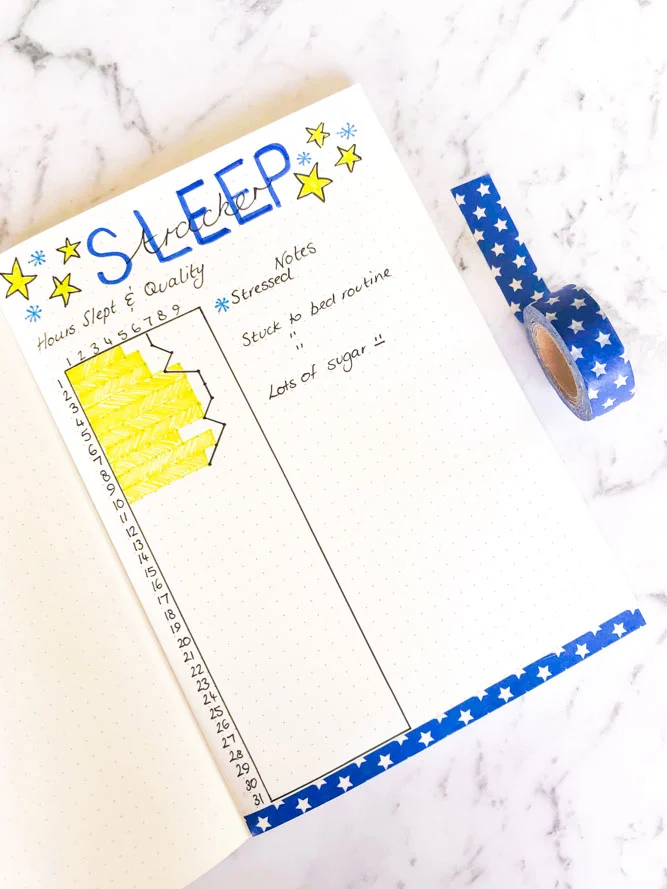 SLEEP
tracker
Hours Slept & Quality
Notes
1 2 3 4 5 6 7 8 9
*Stressed
Stuck to bed routine
"
"
Lots of sugar !!
1
2
3
4
5
6
7
8
9
10
11
12
13
14
15
16
17
18
19
20
21
22
23
24
25
26
27
28
29
30
31